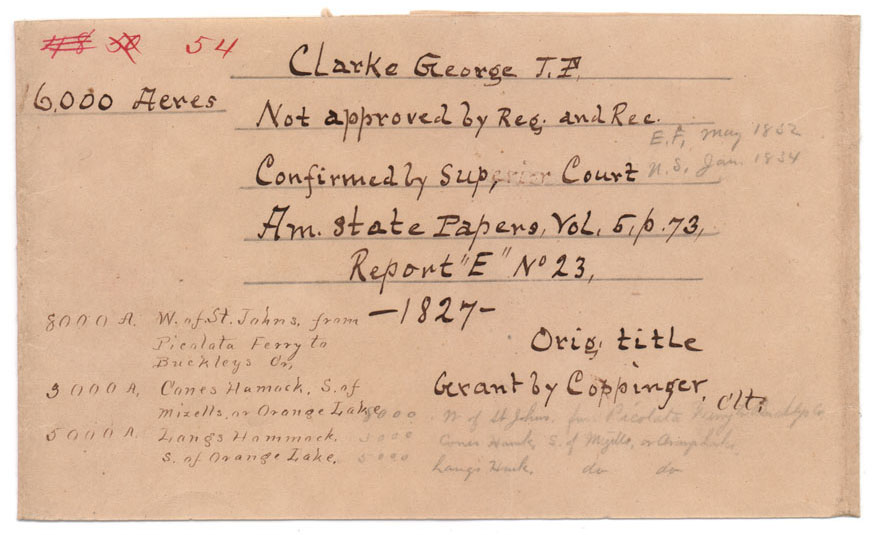 48 50 54
Clarke George J.F.
16,000 Acres
Not approved by Reg. and Rec.
E.F. May 1832
Confirmed by Superior Court
N.S. Jan. 1834
Am. State Papers, Vol. 5, p. 73,
Report "E" No 23,
-1827-
8000 A. W. of St. Johns, from
Picolata Ferry to
Buckleys Cr,
Orig. title
Grant by Coppinger.
3000 A, Cones Hamock, S. of
Mizells, or Orange Lake
5000 A. Langs Hammock.
S. of Orange Lake.
8000 W of St Johns. from Picolata Ferry
3000 Cones Hamk, S. of Mizells, or Orange Lake
5000 Langs Hamk. do do